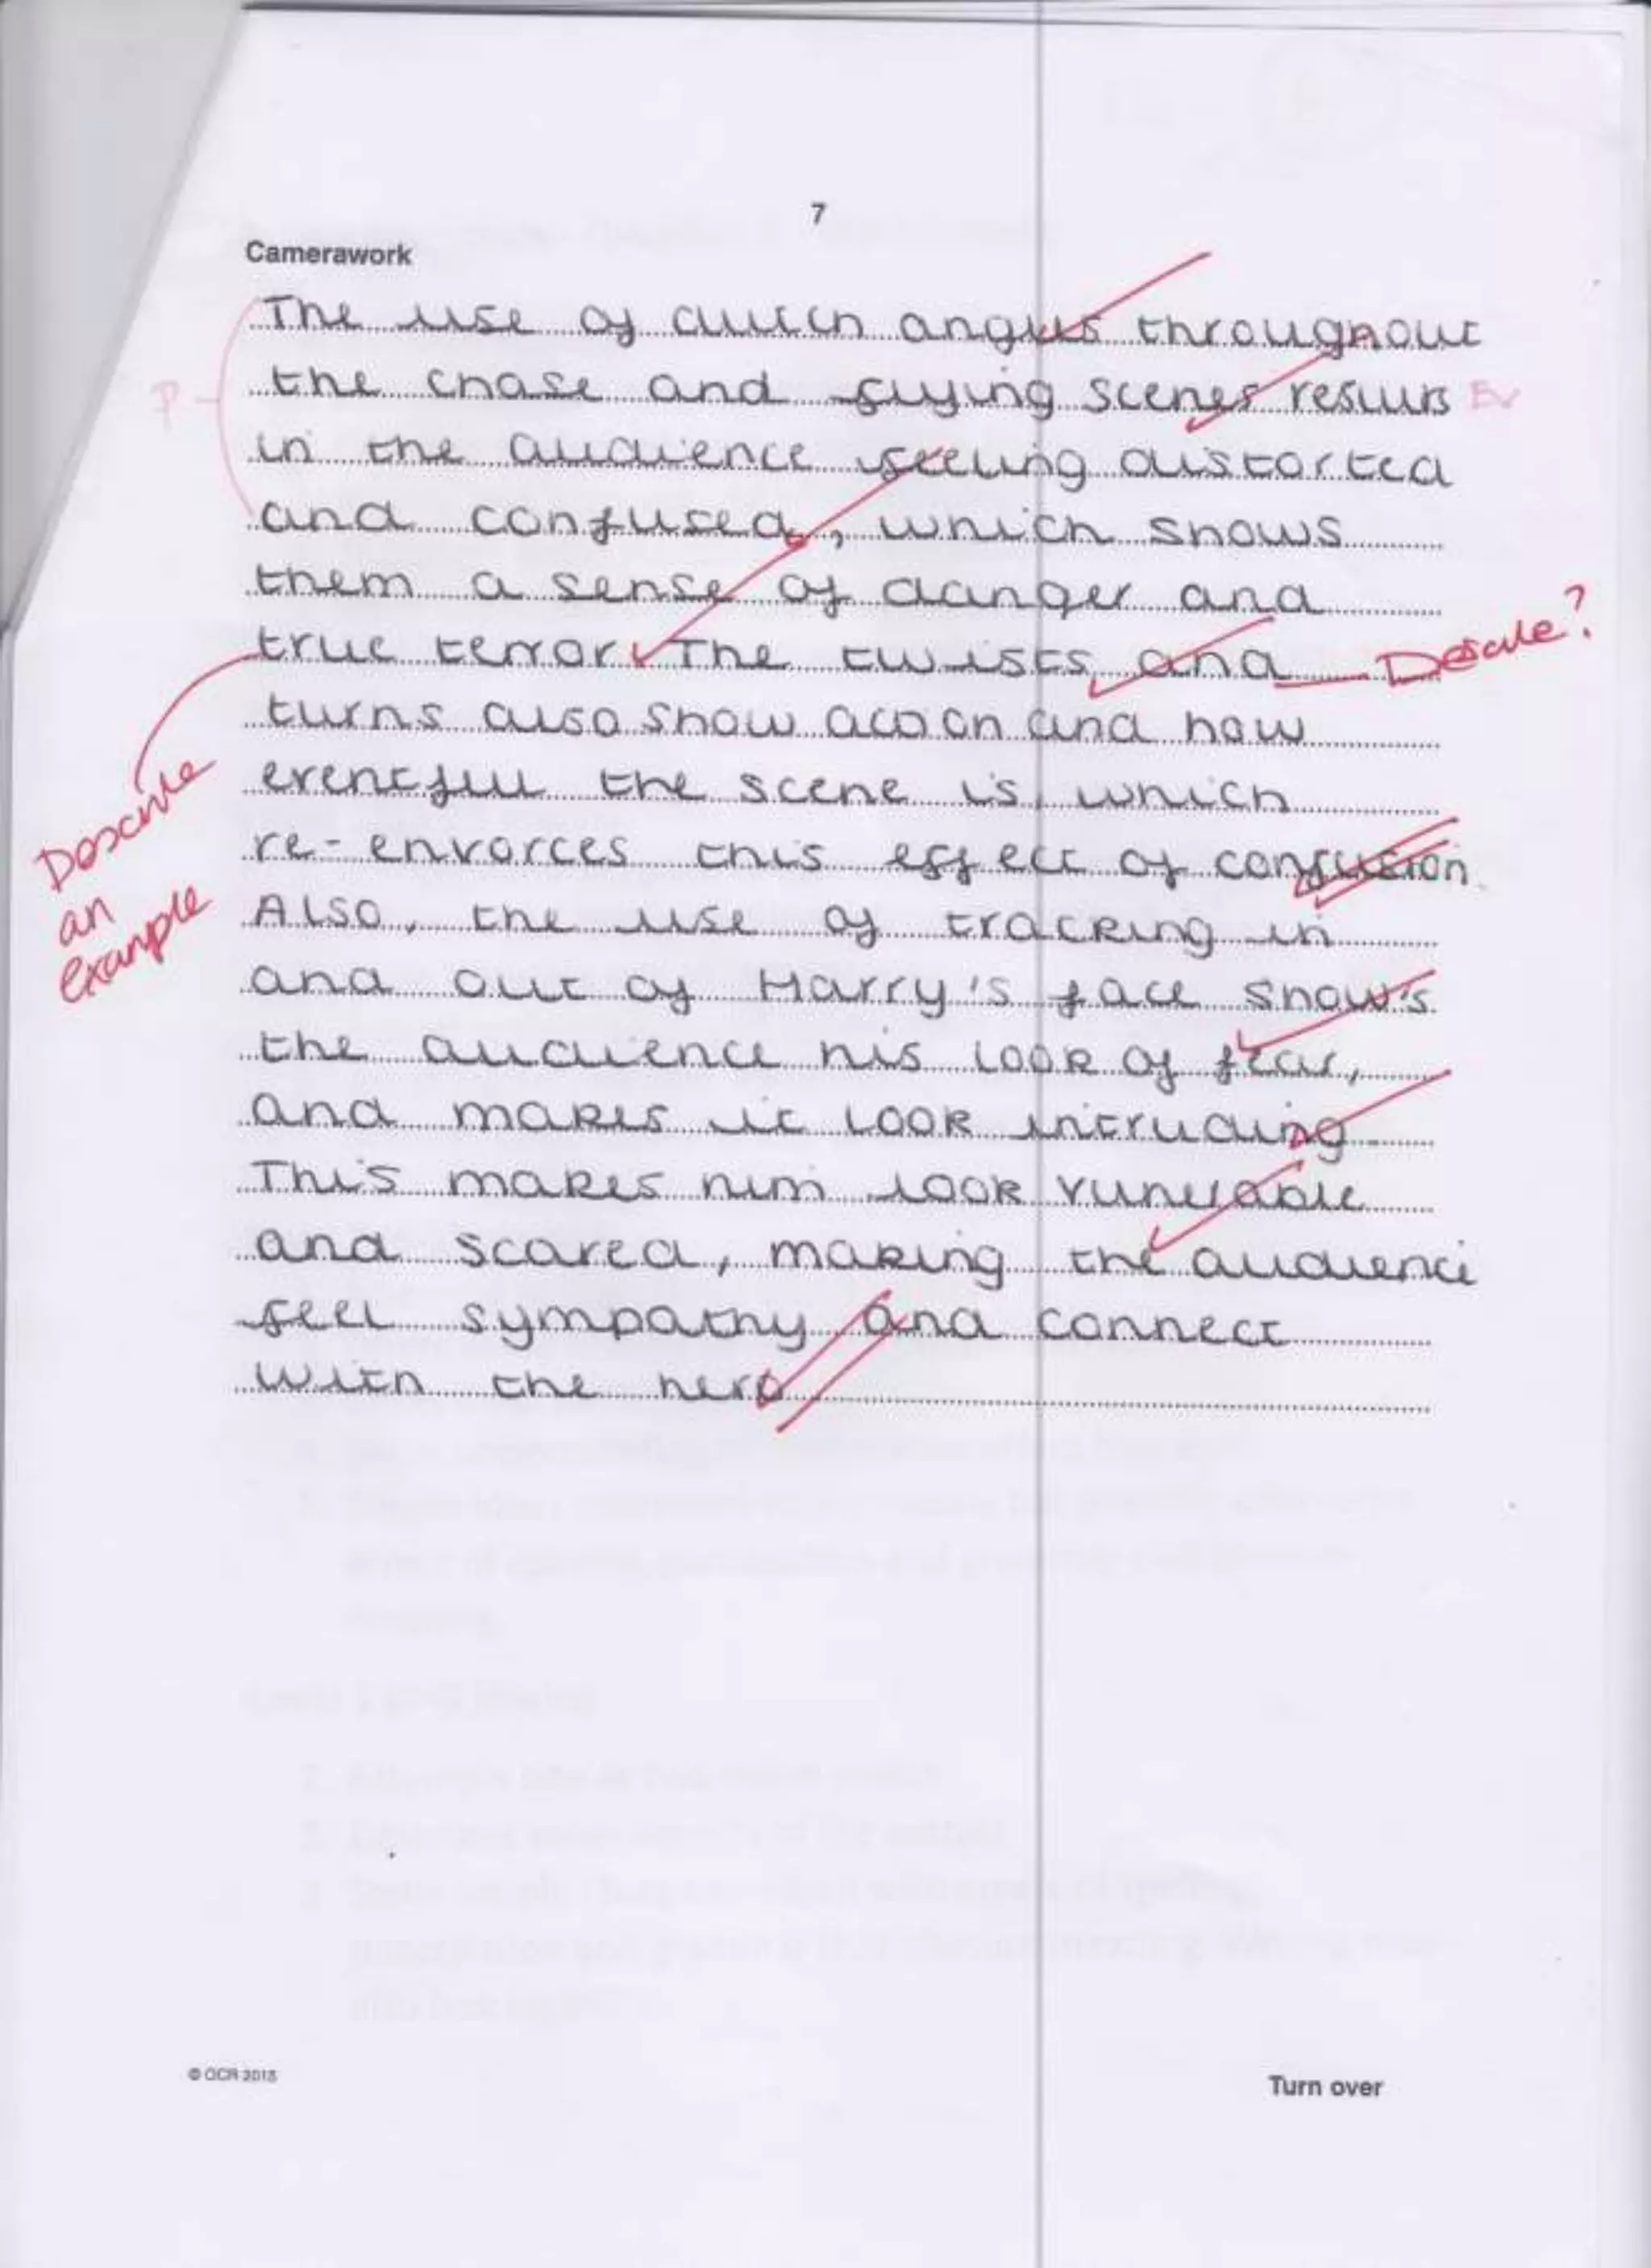 7
Camerawork
The use of dutch angles throughout
the chase and flying scenes results Ev
P
in the audience feeling distorted
and confused, which shows
them a sense of danger and
true terror. The twists and
Describe?
turns also show action and how
eventful the scene is, which
Describe
an
example
re-envorces this effect of confusion.
Also, the use of tracking in
and out of Harry's face show's
the audience his look of fear,
and makes it look intruding.
This makes him look vunerable
and scared, making the audience
feel sympathy and connect
with the hero
© OCR 2015
Turn over